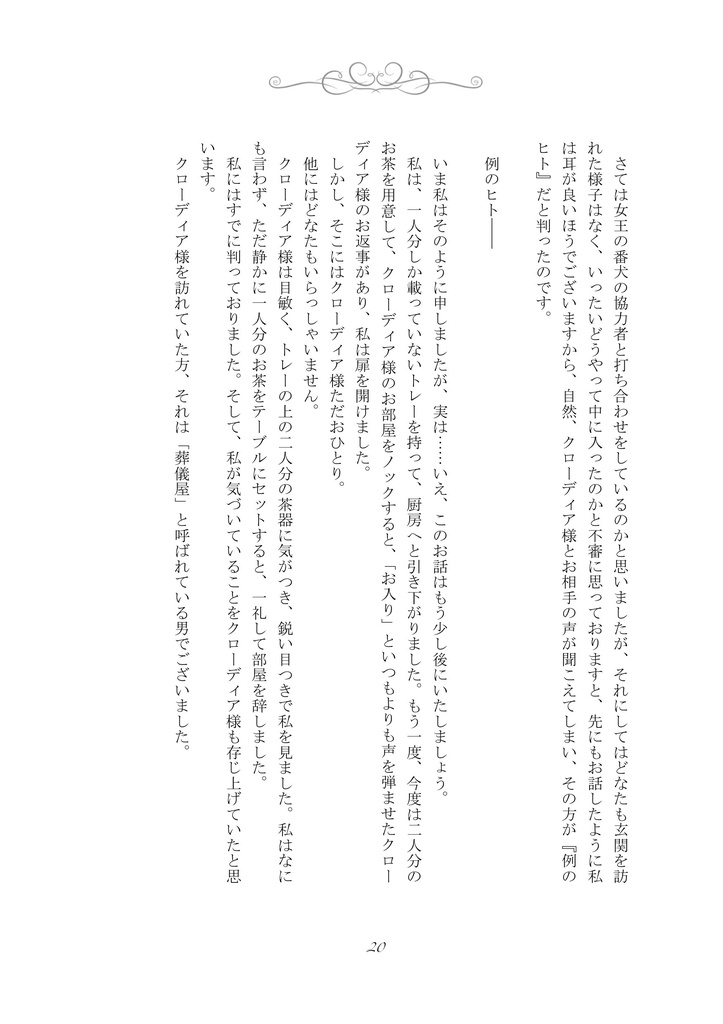 さては女王の番犬の協力者と打ち合わせをしているのかと思いましたが、それにしてはどなたも玄関を訪
れた様子はなく、いったいどうやって中に入ったのかと不審に思っておりますと、先にもお話したように私
は耳が良いほうでございますから、自然、クローディア様とお相手の声が聞こえてしまい、その方が『例の
ヒト』だと判ったのです。
例のヒト――
いま私はそのように申しましたが、実は……いえ、このお話はもう少し後にいたしましょう。
私は、一人分しか載っていないトレーを持って、厨房へと引き下がりました。もう一度、今度は二人分の
お茶を用意して、クローディア様のお部屋をノックすると、「お入り」といつもよりも声を弾ませたクロー
ディア様のお返事があり、私は扉を開けました。
しかし、そこにはクローディア様ただおひとり。
他にはどなたもいらっしゃいません。
クローディア様は目敏く、トレーの上の二人分の茶器に気がつき、鋭い目つきで私を見ました。私はなに
も言わず、ただ静かに一人分のお茶をテーブルにセットすると、一礼して部屋を辞しました。
私にはすでに判っておりました。そして、私が気づいていることをクローディア様も存じ上げていたと思
います。
クローディア様を訪れていた方、それは「葬儀屋」と呼ばれている男でございました。
20